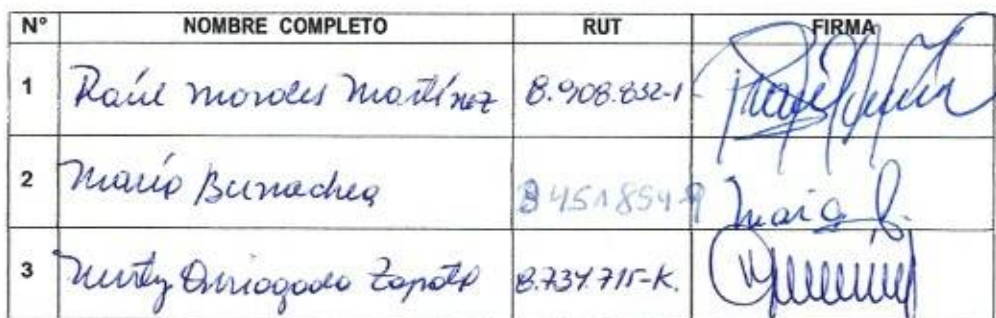 N° NOMBRE COMPLETO RUT FIRMA
1 Raúl Morales Martínez 8.908.832-1
2 María 8451854-9 María
3 Arriagada Zapata 8.734.715-K.